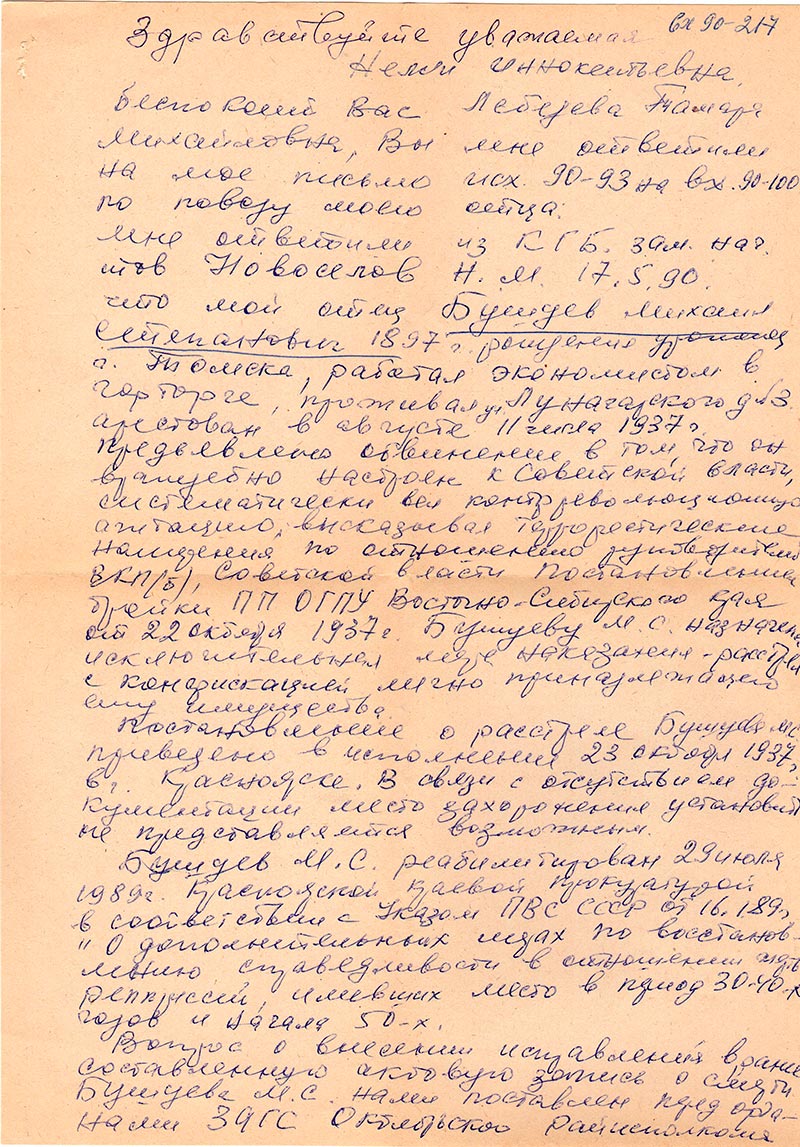 вх 90-217
Здравствуйте уважаемая
Нелли Иннокентьевна,
Беспокоит Вас Лебедева Тамара
Михайловна, Вы мне ответили
на мое письмо исх. 90-93 на вх. 90-100
по поводу моего отца.
мне ответили из КГБ. зам. нач.
тов Новоселов Н. М. 17.5.90.
что мой отец Бушуев Михаил
Степанович 1897 г. рождения уроженец
г. Томска, работал экономистом в
горторге, проживал ул Луначарского д №3
арестован в августе 11 числа 1937 г.
предьявлено обвинение в том, что он
враждебно настроен к Советской власти,
систематически вел контрреволюционную
агитацию, высказывал террористические
намерения по отношению руководителей
ВКП(б), Советской власти Постановлением
тройки ПП ОГПУ Восточно-Сибирского края
от 22 октября 1937 г. Бушуеву М. С. назначена
исключительная мера наказания - расстрел
с конфискацией лично принадлежащего
ему имущества.
Постановление о расстреле Бушуева М С
приведено в исполнение 23 октября 1937 г
в г. Красноярске. В связи с отсутствием до-
кументации место захоронения установить
не представляется возможным.
Бушуев М. С. реабилитирован 29 июля
1989 г. Красноярской Краевой прокуратурой
в соответствии с Указом ПВС СССР от 16.1.89 г,
"О дополнительных мерах по восстанов-
лению справедливости в отношении жертв
репрессий, имевших место в период 30-40-х
годов и начала 50-х.
Вопрос о внесении исправления в ранее
составленную актовую запись о смерти
Бушуева М. С. нами поставлен перед орга-
нами ЗАГС Октябрьского райисполкома